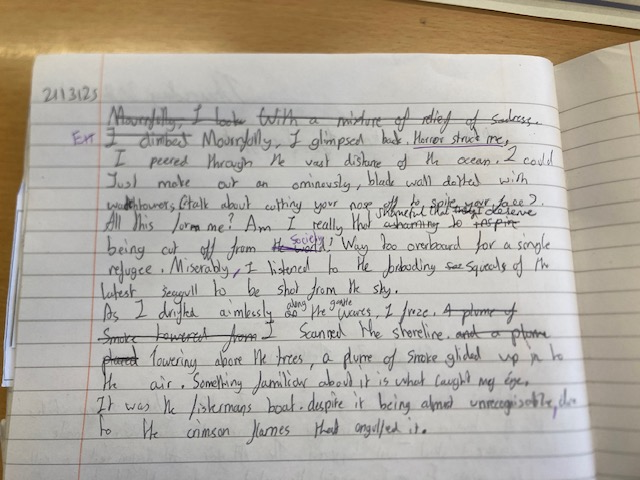 21/3/25
Mournfully, I look With a mixture of relief of sadness.
Ext I climbed Mournfully, I glimpsed back. Horror struck me,
I peered through the vast distane of the ocean. I could
Just make out an ominously, black wall dotted with
watchtowers (talk about cutting your nose off to spite your face).
All this for me? Am I really that ashaming to inspire shameful that deserve
being cut off from the world society! Way too overboard for a single
refugee. Miserably, I listened to the forboding squeals of the
latest seagull to be shot from the sky.
As I drifted aimlessly along the gentle waves, I froze. A plume of
Smoke towered from I Scanned the shoreline. and a plume
towering above the trees, a plume of smoke glided up in to
the air. Something familiar about it is what caught my eye.
It was the fishermans boat. despite it being almost unrecognisable, due
to the crimson flames that engulfed it.